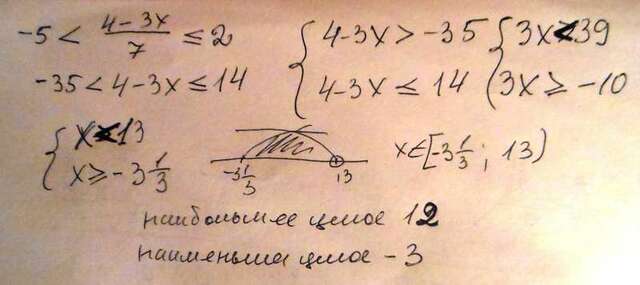 -5 < (4-3x)/7 ≤ 2
-35 < 4-3x ≤ 14
{ 4-3x > -35
4-3x ≤ 14
{ 3x < 39
3x ≥ -10
{ x < 13
x ≥ -3 1/3
-3 1/3 13
x∈[-3 1/3 ; 13)
наибольшее целое 12
наименьша целое -3